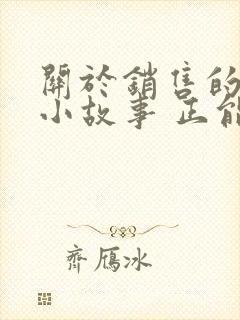 關於銷售的
小故事 正能
齊雁冰